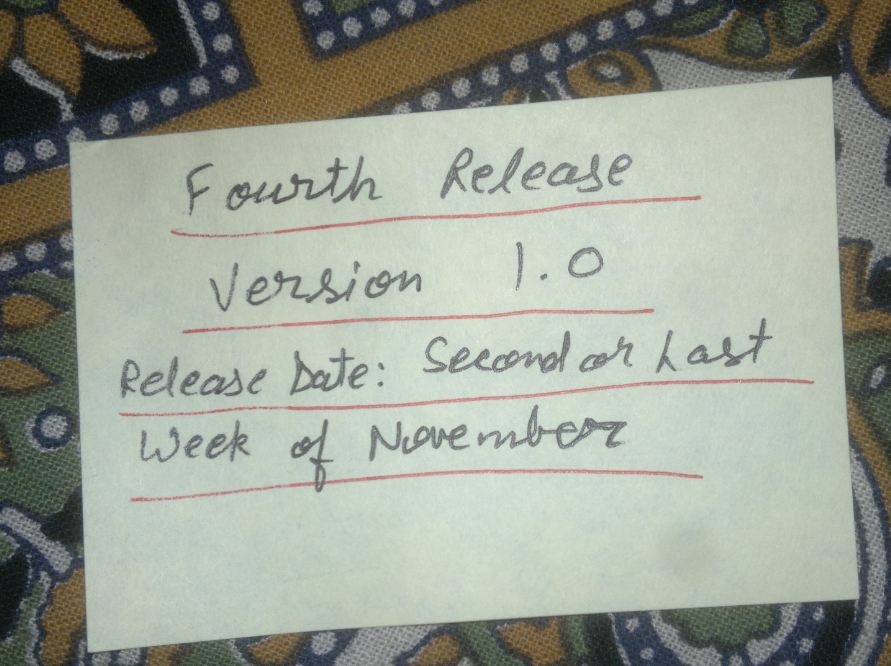 Fourth Release
Version 1.0
Release Date: Second or Last
Week of November